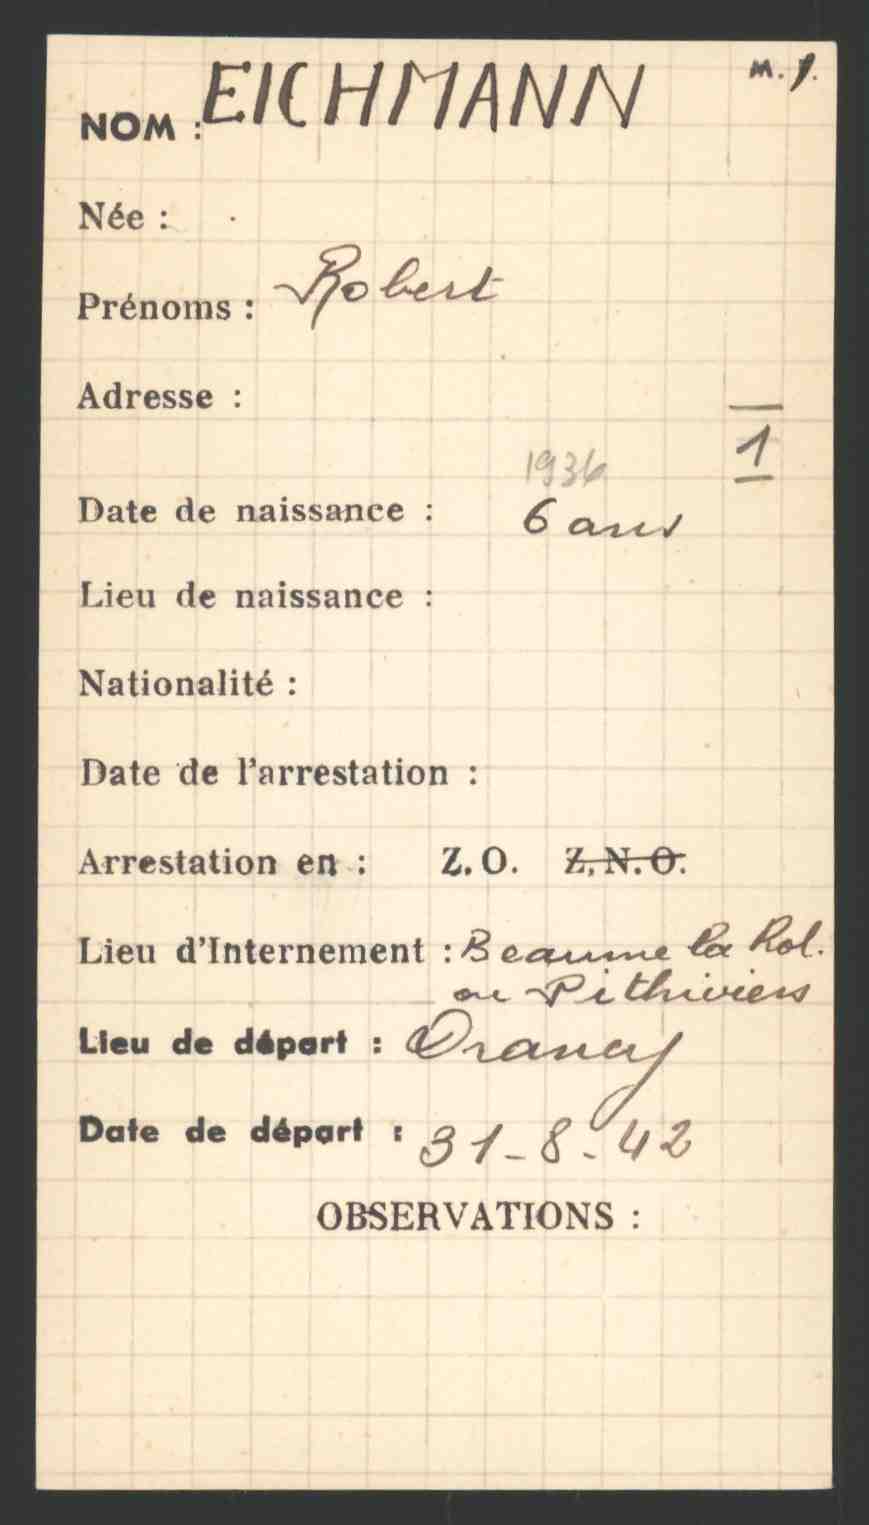 M. J.
NOM : EICHMANN
Née :
Prénoms : Robert
Adresse :
1
1936
Date de naissance : 6 ans
Lieu de naissance :
Nationalité :
Date de l'arrestation :
Arrestation en : Z.O. Z.N.O.
Lieu d'Internement : Beaume la Rol.
ou Pithiviers
Lieu de départ : Drancy
Date de départ : 31-8-42
OBSERVATIONS :